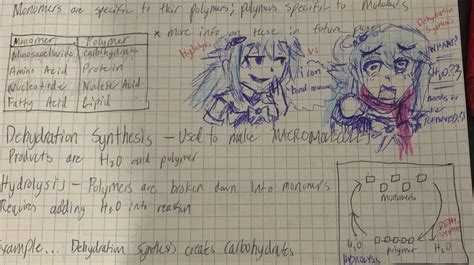 Monomers are specific to their polymers; polymers specific to
* more info on these in future pages
Monomer Polymer
Monosaccharide carbohydrate
Amino Acid Protein
Nucleotide Nucleic Acid
Fatty Acid Lipid
Hydrolysis
vs
Dehydration Synthesis
i can
bond
WHAT?
H₂O??
needs to be
REMOVED?
Dehydration Synthesis - Used to make MACROMOLECULES
Products are H₂O and polymer
Hydrolysis - Polymers are broken down into monomers
Requires adding H₂O into reaction
Example... Dehydration synthesis creates carbohydrates
monomers
polymer
H₂O
H₂O
HYDROLYSIS